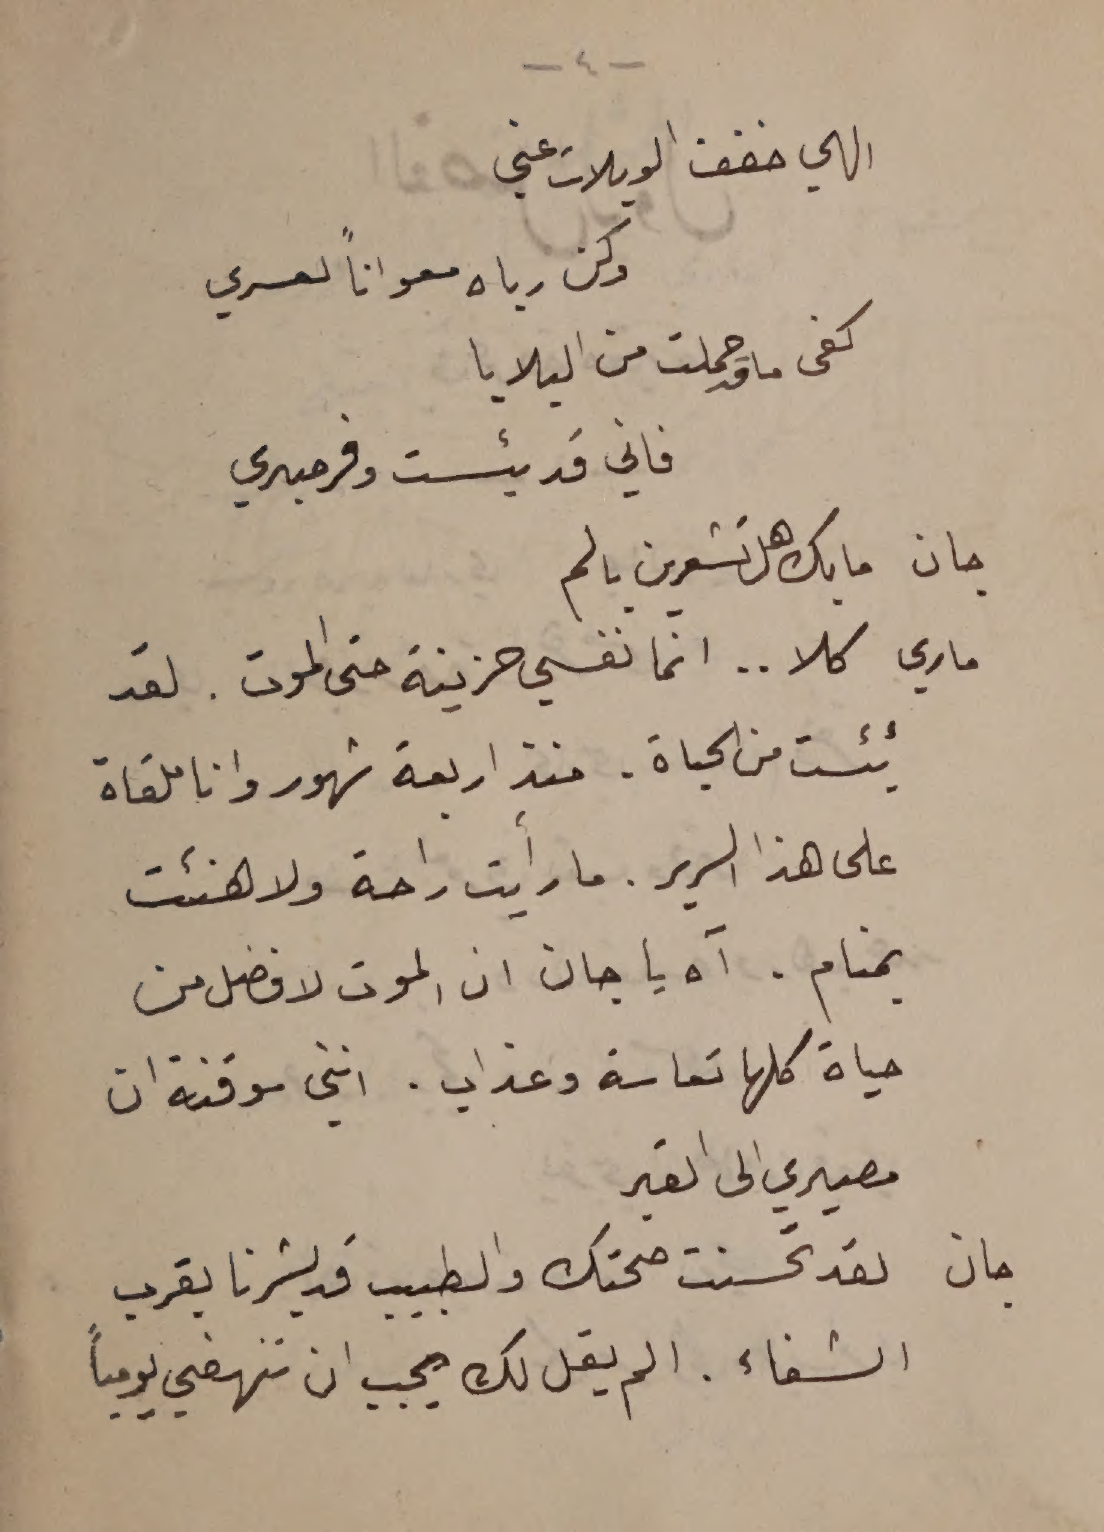 - ٤ -
الهي خفف الويلات عني
وكن رباه معواناً لعسري
كفى ما قد حملت من البلايا
فاني قد يئست وفر صبري
جان ما بك هل تشعرين بالم
ماري كلا .. انما نفسي حزينة حتى الموت . لقد
يئست من الحياة . منذ اربعة شهور وانا ملقاة
على هذا السرير . ما رأيت راحة ولا هنئت
بمنام . آه يا جان ان الموت لافضل من
حياة كلها تعاسة وعذاب . انني موقنة ان
مصيري الى القبر
جان لقد تحسنت صحتك والطبيب قد بشرنا بقرب
الشفاء . الم يقل لك يجب ان تنهضي يومياً